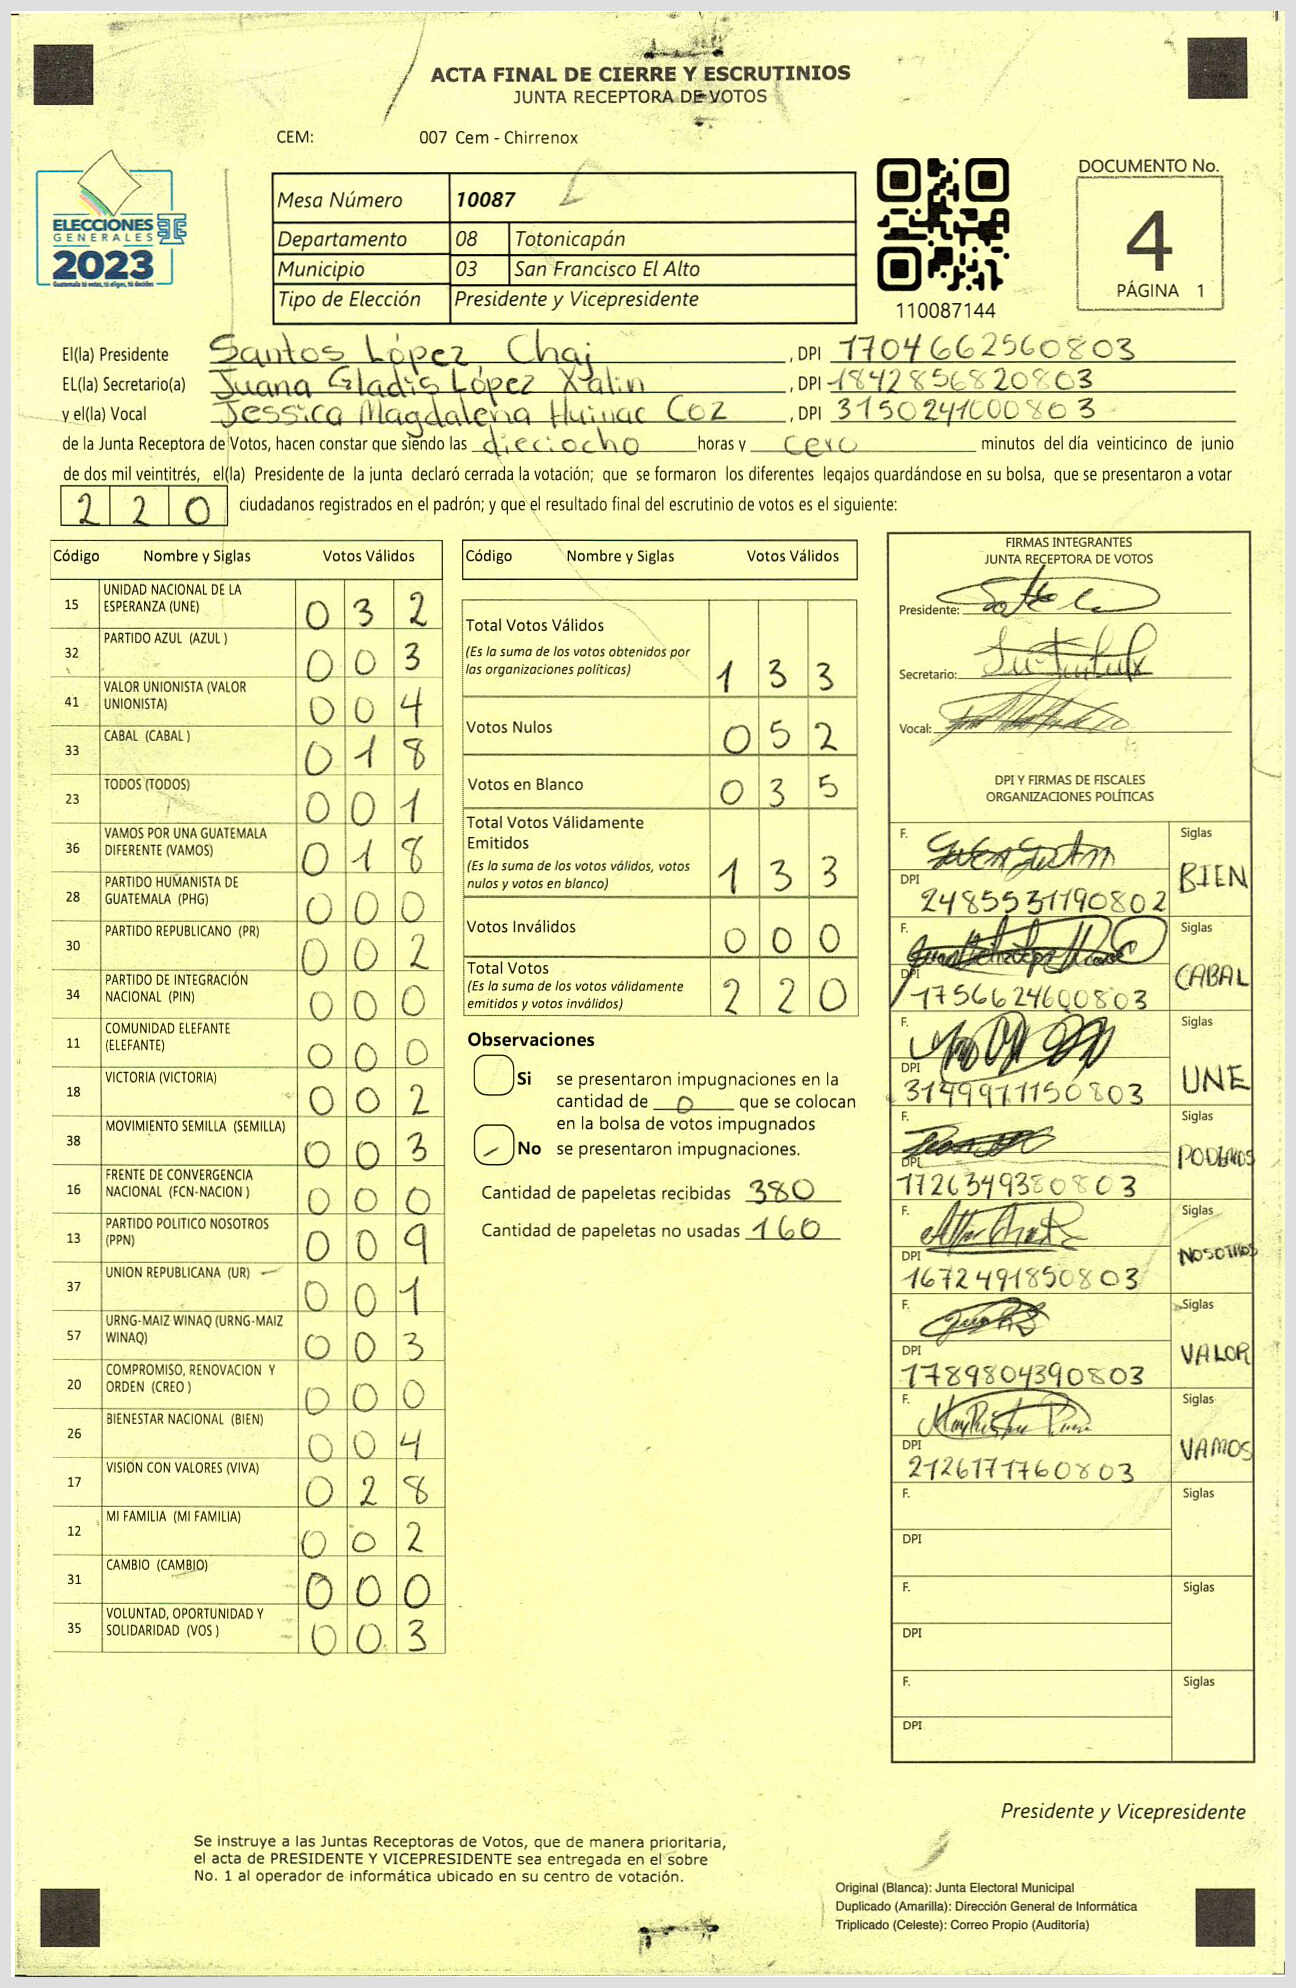 ACTA FINAL DE CIERRE Y ESCRUTINIOS
JUNTA RECEPTORA DE VOTOS
CEM: 007 Cem - Chirrenox
ELECCIONES
GENERALES
2023
Guatemala tú votas, tú eliges, tú decides
Mesa Número 10087
Departamento 08 Totonicapán
Municipio 03 San Francisco El Alto
Tipo de Elección Presidente y Vicepresidente
110087144
DOCUMENTO No.
4
PÁGINA 1
El(la) Presidente Santos López Chaj , DPI 1704662560803
EL(la) Secretario(a) Juana Gladis López Xalin , DPI 1842856820803
y el(la) Vocal Jessica Magdalena Huinac Coz , DPI 3150241000803
de la Junta Receptora de Votos, hacen constar que siendo las dieciocho horas y cero minutos del día veinticinco de junio
de dos mil veintitrés, el(la) Presidente de la junta declaró cerrada la votación; que se formaron los diferentes legajos guardándose en su bolsa, que se presentaron a votar
220 ciudadanos registrados en el padrón; y que el resultado final del escrutinio de votos es el siguiente:
Código Nombre y Siglas Votos Válidos
15 UNIDAD NACIONAL DE LA ESPERANZA (UNE) 032
32 PARTIDO AZUL (AZUL ) 003
41 VALOR UNIONISTA (VALOR UNIONISTA) 004
33 CABAL (CABAL ) 018
23 TODOS (TODOS) 001
36 VAMOS POR UNA GUATEMALA DIFERENTE (VAMOS) 018
28 PARTIDO HUMANISTA DE GUATEMALA (PHG) 000
30 PARTIDO REPUBLICANO (PR) 002
34 PARTIDO DE INTEGRACIÓN NACIONAL (PIN) 000
11 COMUNIDAD ELEFANTE (ELEFANTE) 000
18 VICTORIA (VICTORIA) 002
38 MOVIMIENTO SEMILLA (SEMILLA) 003
16 FRENTE DE CONVERGENCIA NACIONAL (FCN-NACION ) 000
13 PARTIDO POLITICO NOSOTROS (PPN) 009
37 UNION REPUBLICANA (UR) 001
57 URNG-MAIZ WINAQ (URNG-MAIZ WINAQ) 003
20 COMPROMISO, RENOVACION Y ORDEN (CREO ) 000
26 BIENESTAR NACIONAL (BIEN) 004
17 VISION CON VALORES (VIVA) 028
12 MI FAMILIA (MI FAMILIA) 002
31 CAMBIO (CAMBIO) 000
35 VOLUNTAD, OPORTUNIDAD Y SOLIDARIDAD (VOS ) 003
Código Nombre y Siglas Votos Válidos
Total Votos Válidos
(Es la suma de los votos obtenidos por
las organizaciones políticas) 133
Votos Nulos 052
Votos en Blanco 035
Total Votos Válidamente
Emitidos
(Es la suma de los votos válidos, votos
nulos y votos en blanco) 133
Votos Inválidos 000
Total Votos
(Es la suma de los votos válidamente
emitidos y votos inválidos) 220
Observaciones
Si se presentaron impugnaciones en la
cantidad de 0 que se colocan
en la bolsa de votos impugnados
No se presentaron impugnaciones.
Cantidad de papeletas recibidas 380
Cantidad de papeletas no usadas 160
FIRMAS INTEGRANTES
JUNTA RECEPTORA DE VOTOS
Presidente:
Secretario:
Vocal:
DPI Y FIRMAS DE FISCALES
ORGANIZACIONES POLÍTICAS
F. Siglas
DPI BIEN
2485531190802
F. Siglas
DPI CABAL
1756624600803
F. Siglas
DPI UNE
3149971150803
F. Siglas
DPI PODEMOS
1726349380803
F. Siglas
DPI NOSOTROS
1672491850803
F. Siglas
DPI VALOR
1789804390803
F. Siglas
DPI VAMOS
2126171760803
F. Siglas
DPI
F. Siglas
DPI
F. Siglas
DPI
Presidente y Vicepresidente
Se instruye a las Juntas Receptoras de Votos, que de manera prioritaria,
el acta de PRESIDENTE Y VICEPRESIDENTE sea entregada en el sobre
No. 1 al operador de informática ubicado en su centro de votación.
Original (Blanca): Junta Electoral Municipal
Duplicado (Amarilla): Dirección General de Informática
Triplicado (Celeste): Correo Propio (Auditoría)